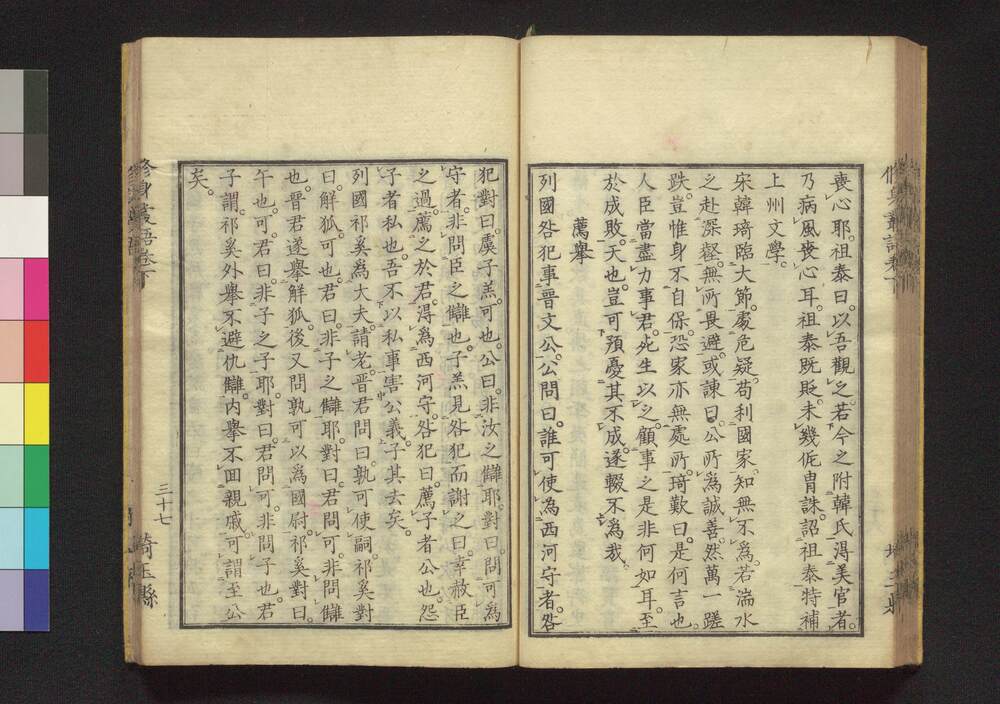 喪心耶。祖泰曰。以吾觀之。若今之附韓氏得美官者。
乃病風喪心耳。祖泰既貶。未幾侂冑誅。詔祖泰特補
上州文學。
宋韓琦臨大節。處危疑。苟利國家。知無不爲。若湍水
之赴深壑。無所畏避。或諫曰。公所爲誠善。然萬一蹉
跌。豈惟身不自保。恐家亦無處所。琦歎曰。是何言也。
人臣當盡力事君。死生以之。顧事之是非何如耳。至
於成敗。天也。豈可預憂其不成。遂輟不爲哉。
薦擧
列國咎犯事晉文公。公問曰。誰可使爲西河守者。咎
犯對曰。虞子羔可也。公曰。非汝之讎耶。對曰。問可爲
守者。非問臣之讎也。子羔見咎犯而謝之曰。幸赦臣
之過。薦之於君。得爲西河守。咎犯曰。薦子者公也。怨
子者私也。吾不以私事害公義。子其去矣。
列國祁奚爲大夫。請老。晉君問曰。孰可使嗣。祁奚對
曰。解狐可也。君曰。非子之讎耶。對曰。君問可。非問讎
也。晉君遂擧解狐。後又問孰可以爲國尉。祁奚對曰。
午也可。君曰。非子之子耶。對曰。君問可。非問子也。君
子謂。祁奚外擧不避仇讎。內擧不回親戚。可謂至公
矣。
修身叢語卷下
三十七
埼玉縣